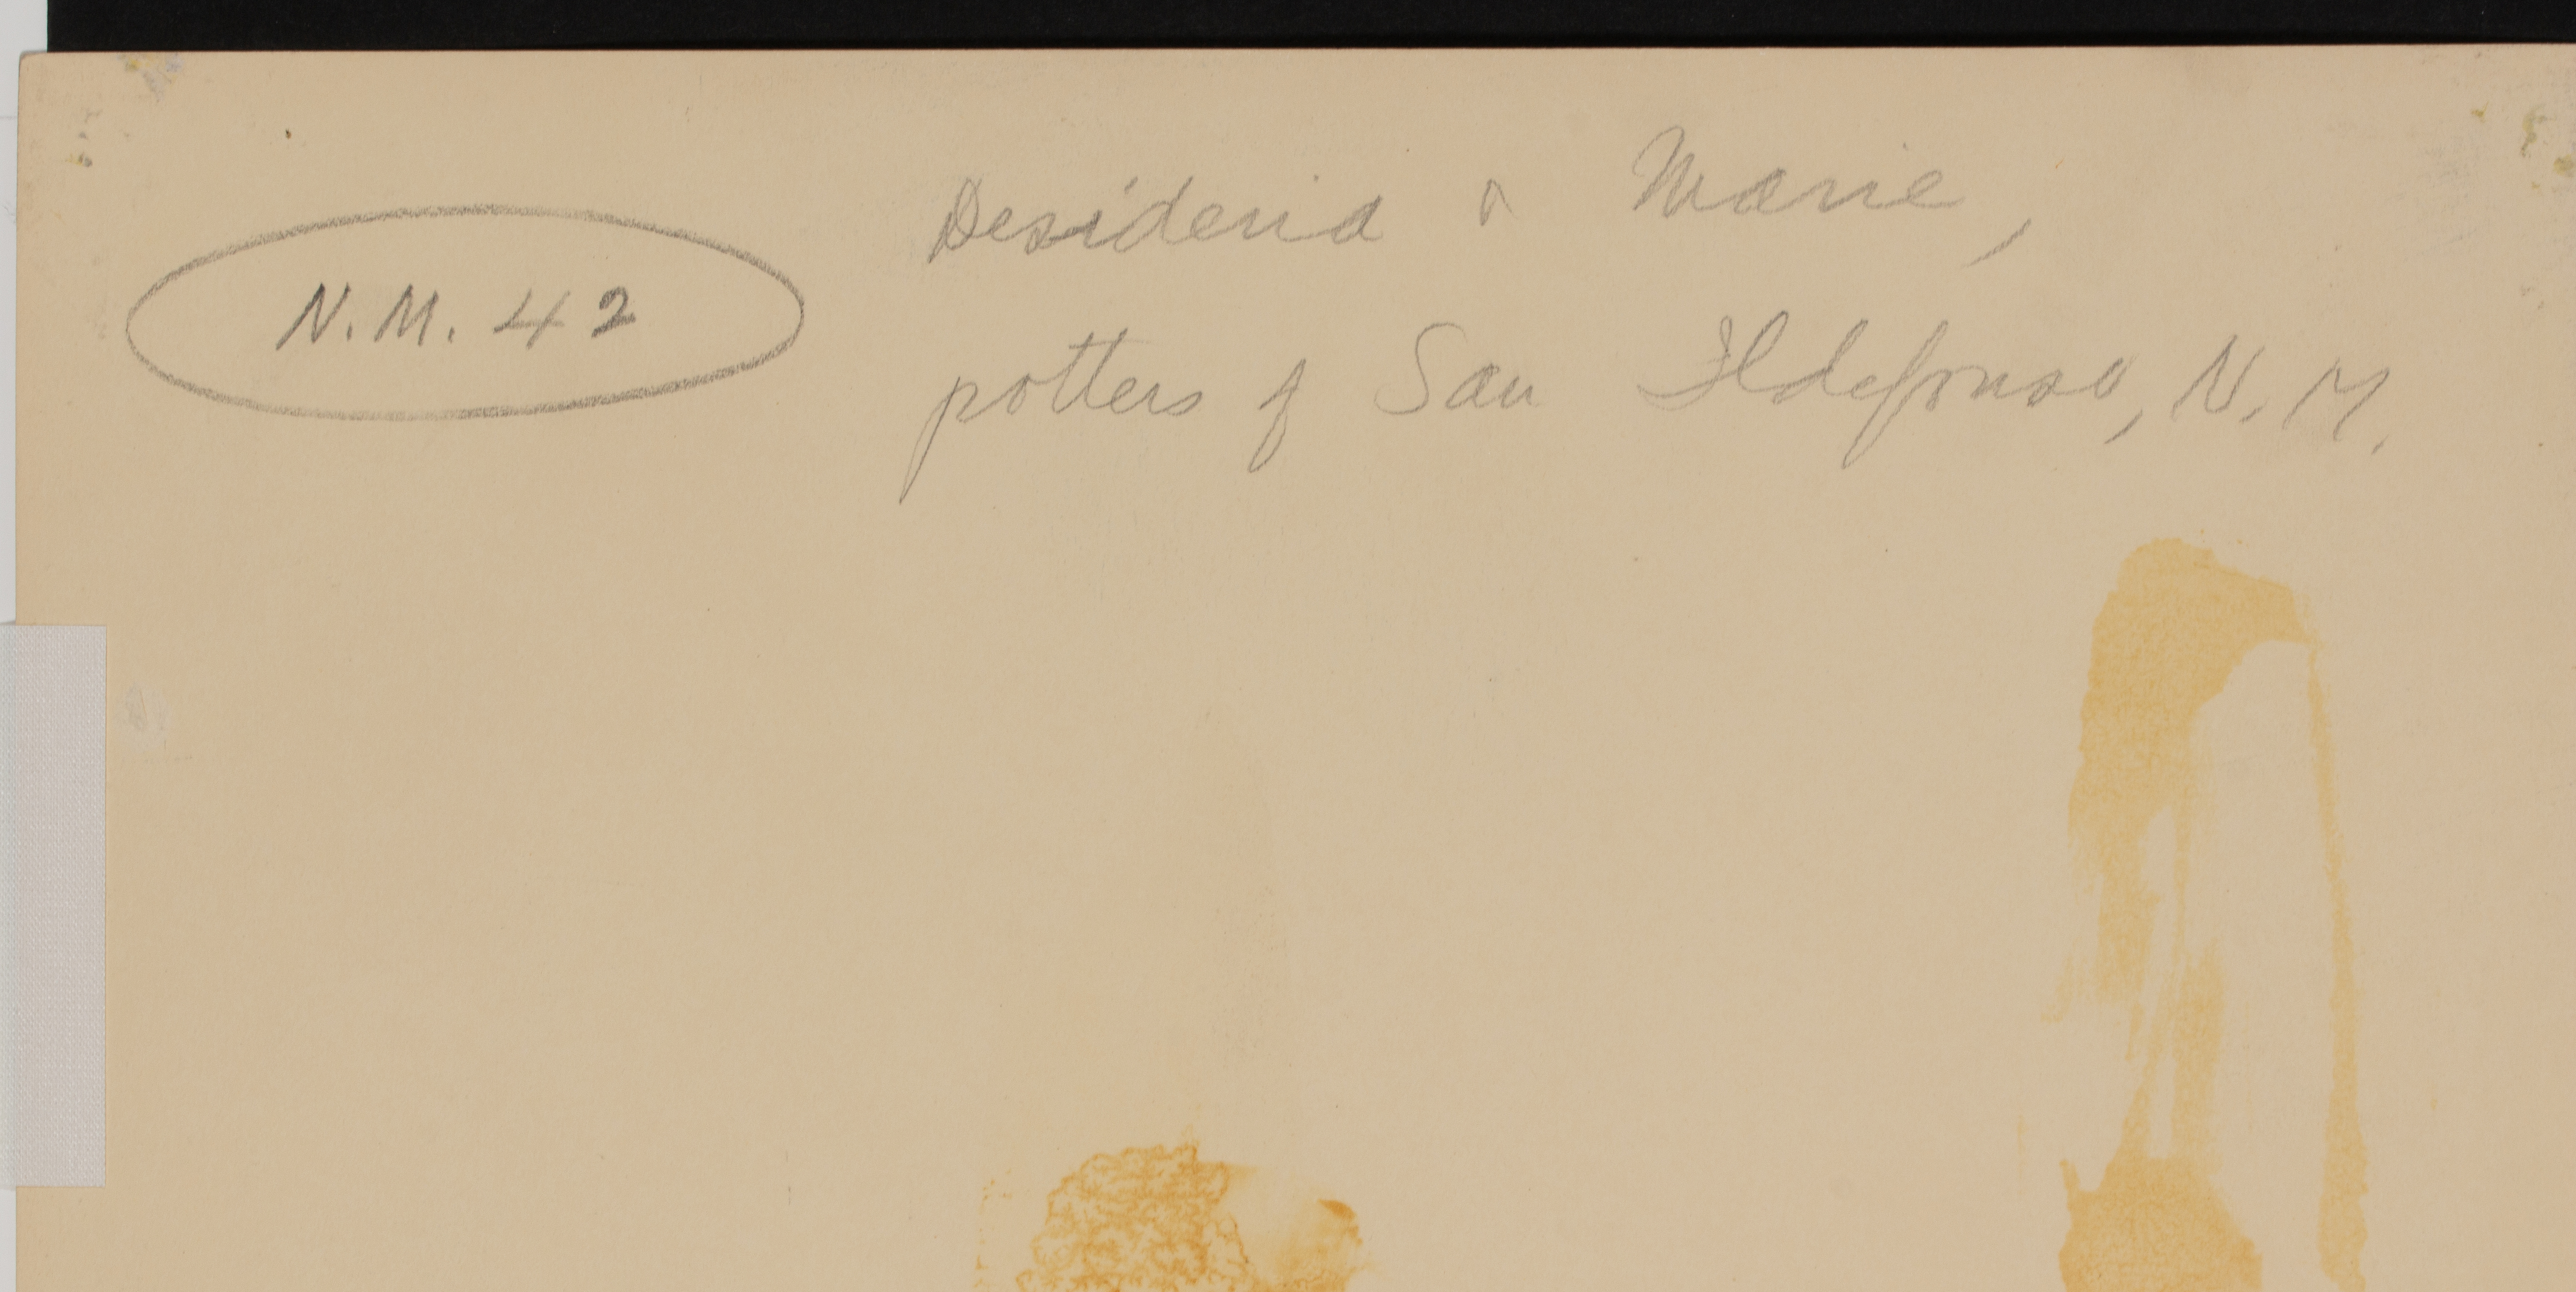 N.M. 42
Desideria & Marie,
potters of San Ildefonso, N.M.